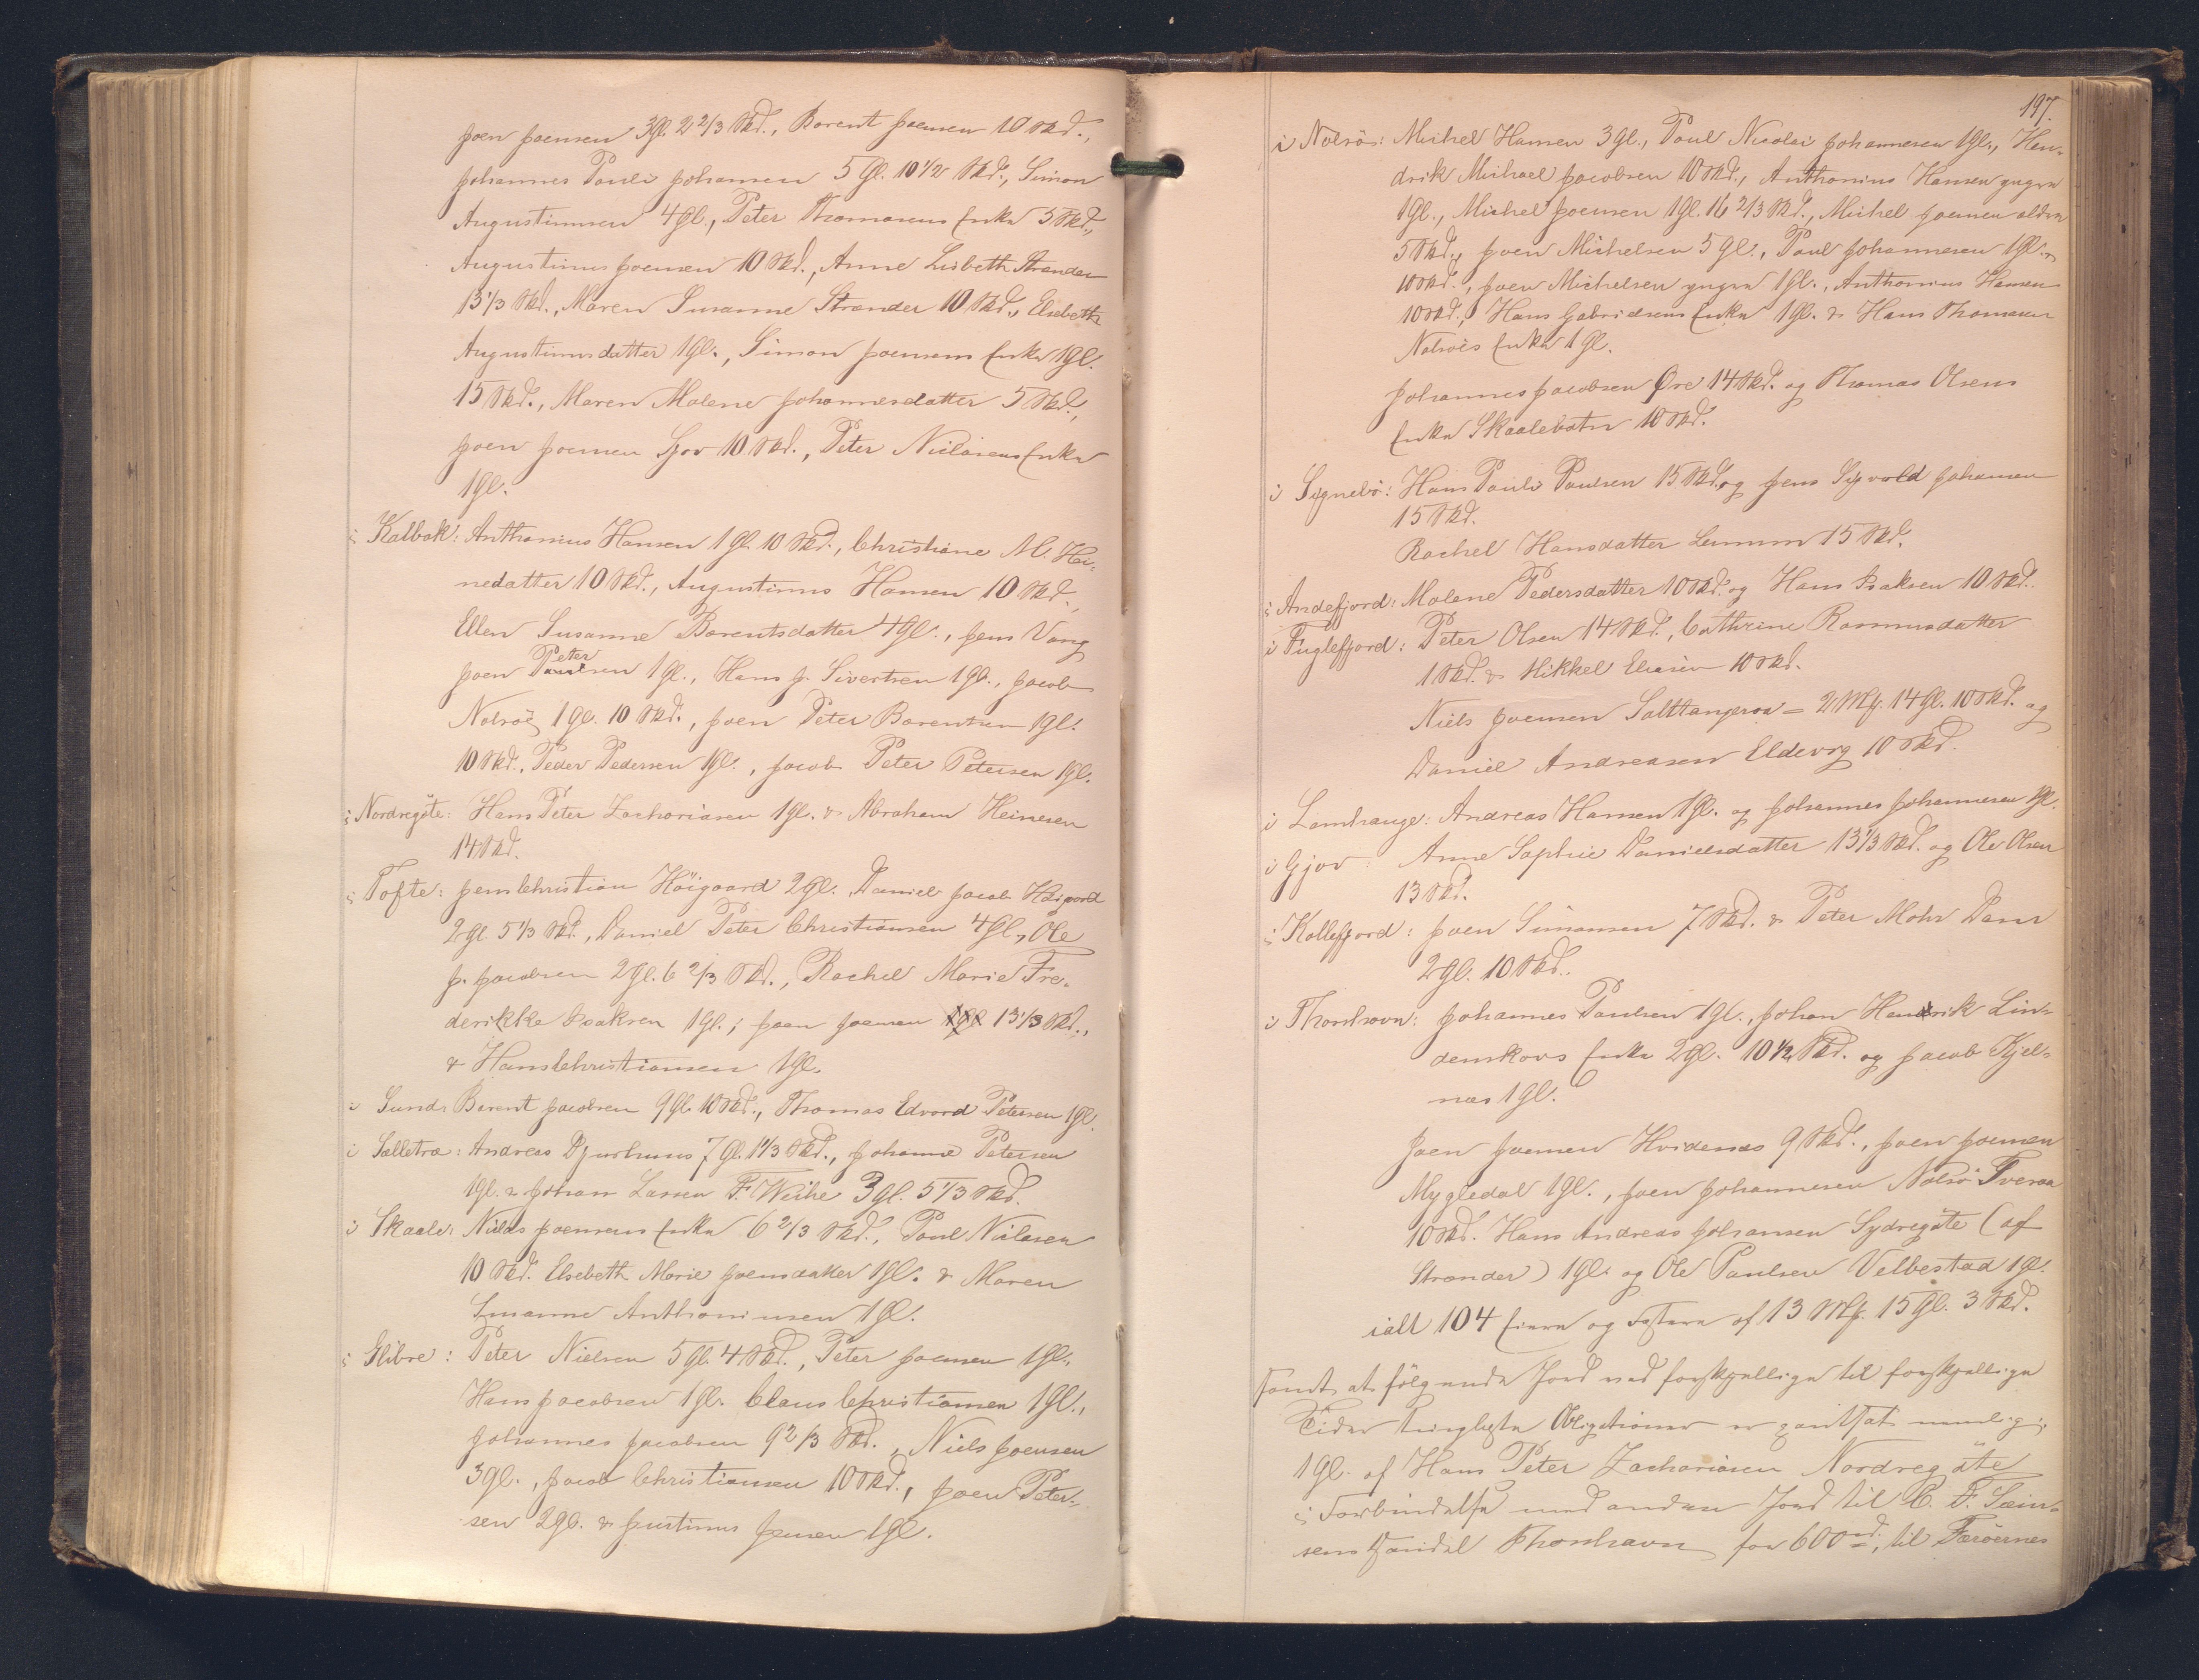 Joen Joensen 3 Gl. 2 2/3 Skd., Barent Joensen 10 Skd.,
Johannes Pauli Johansen 5 Gl. 10 1/2 Skd., Simon
Augustinusen 4 Gl., Peter Thomasens Enke 5 Skd.,
Augustinus Joensen 10 Skd., Anne Lisbeth Strander
13 1/3 Skd., Maren Susanne Strander 10 Skd., Elsebeth
Augustinusdatter 1 Gl., Simon Joensens Enke 1 Gl.
15 Skd., Maren Malene Johannesdatter 5 Skd.,
Joen Joensen Gjov 10 Skd., Peter Niclasens Enke
1 Gl.
i Kalbak: Anthonius Hansen 1 Gl. 10 Skd., Christiane M. Hei-
nedatter 10 Skd., Augustinus Hansen 10 Skd.,
Ellen Susanne Barentsdatter 4 Gl., Jens Vang
Peter
Joen Poulsen 1 Gl., Hans J. Sivertsen 1 Gl., Jacob
Nolsöe 1 Gl. 10 Skd., Joen Peter Barentsen 1 Gl.
10 Skd., Peder Pedersen 1 Gl., Jacob Peter Petersen 1 Gl.
i Nordregöte: Hans Peter Zachariasen 1 Gl. & Abraham Heinesen
14 Skd.
i Tofte: Jens Christian Höigaard 2 Gl. Daniel Jacob Höigaard
2 Gl. 5 1/3 Skd., Daniel Peter Christiansen 4 Gl., Ole
J. Jacobsen 2 Gl. 6 2/3 Skd., Rachel Marie Fre-
derikke Isaksen 1 Gl., Joen Joensen 1 Gl 13 1/3 Skd.,
& Hans Christiansen 1 Gl.
i Sund: Barent Jacobsen 9 Gl. 10 Skd., Thomas Edvard Petersen 1 Gl.
i Sælletræ: Andreas Djurhuus 7 Gl. 1 1/3 Skd., Johanne Petersen
1 Gl. & Johan Lassen F. Weihe 3 Gl. 5 1/3 Skd.
i Skaale: Niels Joensens Enke 6 2/3 Skd., Poul Niclasen
10 Skd. Elsebeth Marie Joensdatter 1 Gl. & Maren
Susanne Anthoniusen 1 Gl.
i Glibre: Peter Nielsen 5 Gl. 4 Skd., Peter Joensen 1 Gl.,
Hans Jacobsen 1 Gl. Claus Christiansen 1 Gl.,
Johannes Jacobsen 9 2/3 Skd., Niels Joensen
3 Gl., Jacob Christiansen 10 Skd., Joen Peter-
sen 2 Gl. & Justinus Joensen 1 Gl.
197.
i Nolsöe: Michel Hansen 3 Gl., Poul Nicolai Johannesen 1 Gl., Hen-
drik Michael Jacobsen 10 Skd., Anthonius Hansen yngre
1 Gl., Michel Joensen 1 Gl. 16 2/3 Skd., Michel Joensen ældre
5 Skd., Joen Michelsen 5 Gl., Poul Johannesen 1 Gl.
10 Skd., Joen Michelsen yngre 1 Gl., Anthonius Hansen
10 Skd., Hans Gabrielsens Enke 1 Gl. & Hans Thomasen
Nolsöes Enke 1 Gl.
Johannes Jacobsen Öre 14 Skd. og Thomas Olsens
Enke Skaalebotn 10 Skd.
i Signebö: Hans Pauli Poulsen 15 Skd. og Jens Sigvald Johansen
15 Skd.
Rachel Hansdatter 15 Skd.
i Andefjord: Malene Pedersdatter 10 Skd. og Hans Isaksen 10 Skd.
i Fuglefjord: Peter Olsen 14 Skd., Cathrine Rasmusdatter
1 Skd. & Mikkel Eliasen 10 Skd.
Niels Joensen Salttangeraa = 2 Mk. 14 Gl. 10 Skd. og
Daniel Andreasen Eldevig 10 Skd.
i Lamhauge: Andreas Hansen 1 Gl. og Johannes Johannesen 1 Gl.
i Gjov: Anne Sophie Danielsdatter 13 1/3 Skd. og Ole Olsen
13 Skd.
i Kollefjord: Joen Simonsen 7 Skd. & Peter Mohr Dam
2 Gl. 10 Skd.
i Thorshavn: Johannes Poulsen 1 Gl., Johan Hendrik Lin-
denskovs Enke 2 Gl. 10 1/2 Skd. og Jacob Kjel-
næs 1 Gl.
Joen Joensen Hvidenæs 9 Skd., Joen Joensen
Mygledal 1 Gl., Joen Johannesen Nolsö Tveraa
10 Skd. Hans Andreas Johansen Sydregöte (af
Strander) 1 Gl. og Ole Poulsen Velbestad 1 Gl.
ialt 104 Eiere og Fæstere af 13 Mk. 15 Gl. 3 Skd.
samt at fölgende Jord ved forskjellige til forskjellige
Tider tinglyste Obligationer er pantsat nemlig:
1 Gl. af Hans Peter Zachariasen Nordregöte
i Forbindelse med anden Jord til C. F. Siem-
sens Handel Thorshavn for 600 rd., til Færöernes